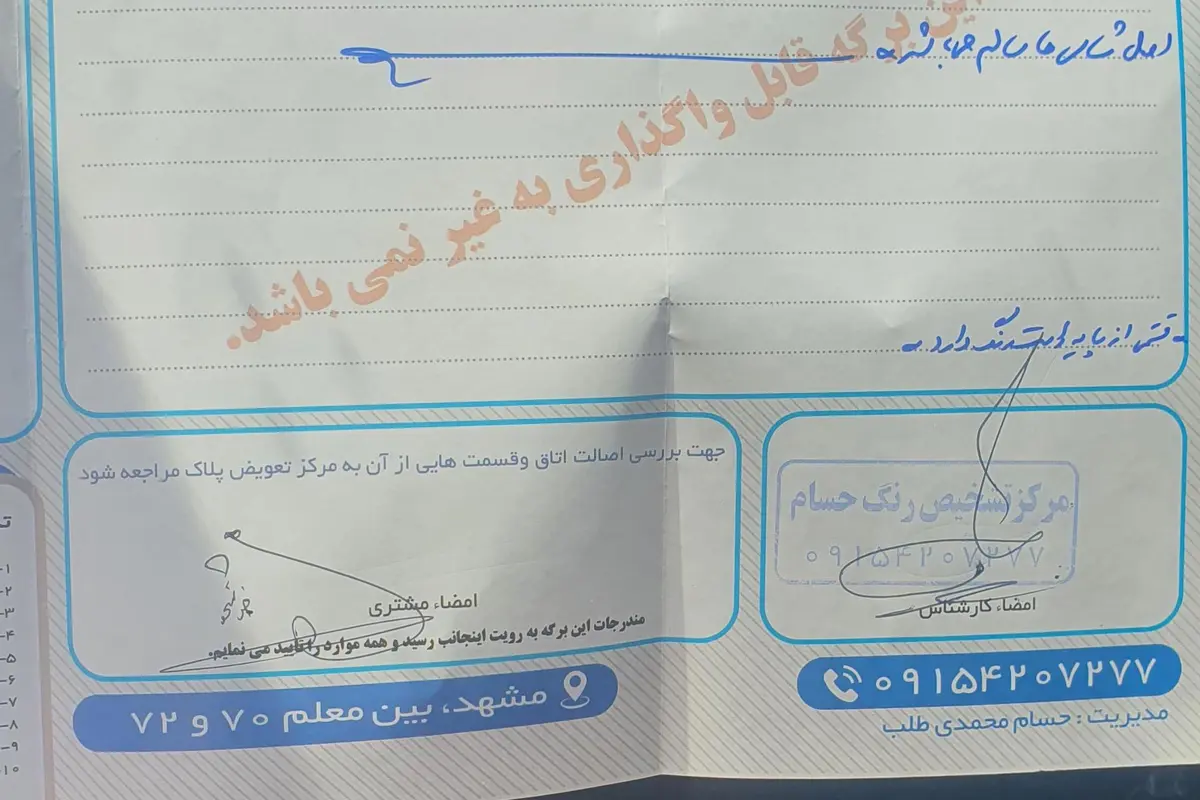 اصل شاسی ها سالم می باشد
این برگه قابل واگذاری به غیر نمی باشد.
قسمتی از پایه رنگ دارد
جهت بررسی اصالت اتاق وقسمت هایی از آن به مرکز تعویض پلاک مراجعه شود
امضاء مشتری
مندرجات این برگه به رویت اینجانب رسید و همه موارد را تایید می نمایم.
مرکز تشخیص رنگ حسام
۰۹۱۵۴۲۰۷۲۷۷
امضاء کارشناس
مشهد، بین معلم ۷۰ و ۷۲
۰۹۱۵۴۲۰۷۲۷۷
مدیریت : حسام محمدی طلب
-۱
-۲
-۳
-۴
-۵
-۶
-۷
-۸
-۹
-۱۰